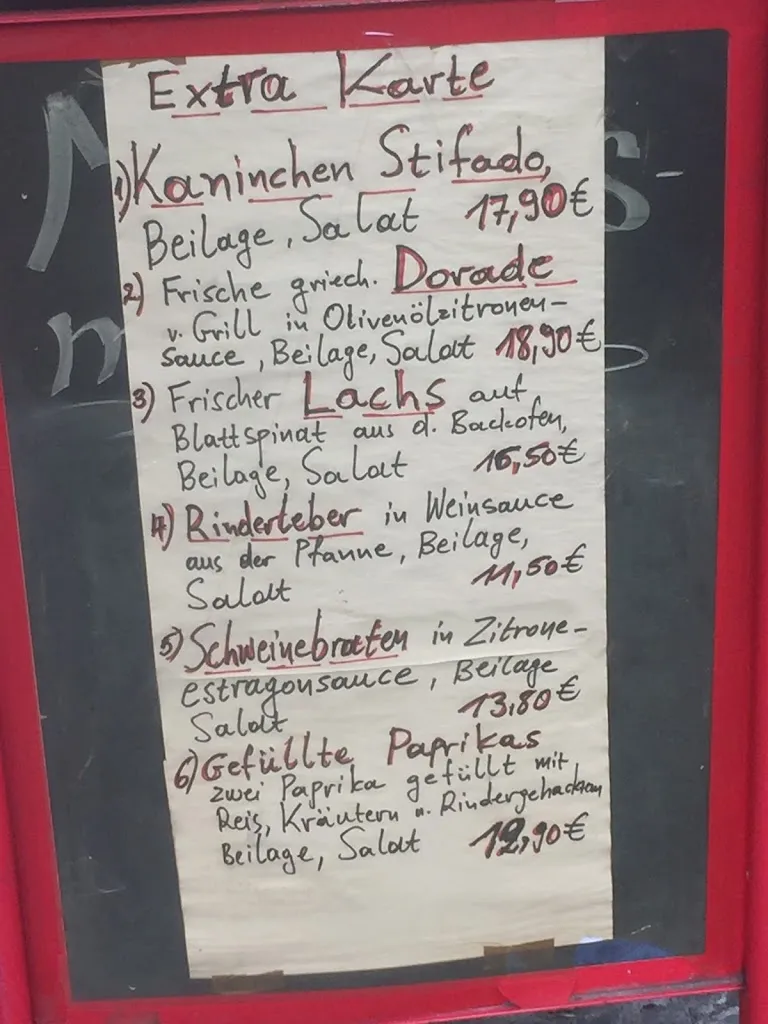 Extra Karte
1) Kaninchen Stifado,
Beilage, Salat 17,90€
2) Frische griech. Dorade
v. Grill in Olivenölzitronen-
sauce, Beilage, Salat 18,90€
3) Frischer Lachs auf
Blattspinat aus d. Backofen,
Beilage, Salat 16,50€
4) Rinderleber in Weinsauce
aus der Pfanne, Beilage,
Salat 11,50€
5) Schweinebraten in Zitrone-
estragonsauce, Beilage
Salat 13,80€
6) Gefüllte Paprikas
zwei Paprika gefüllt mit
Reis, Kräutern u. Rindergehacktem
Beilage, Salat 12,90€